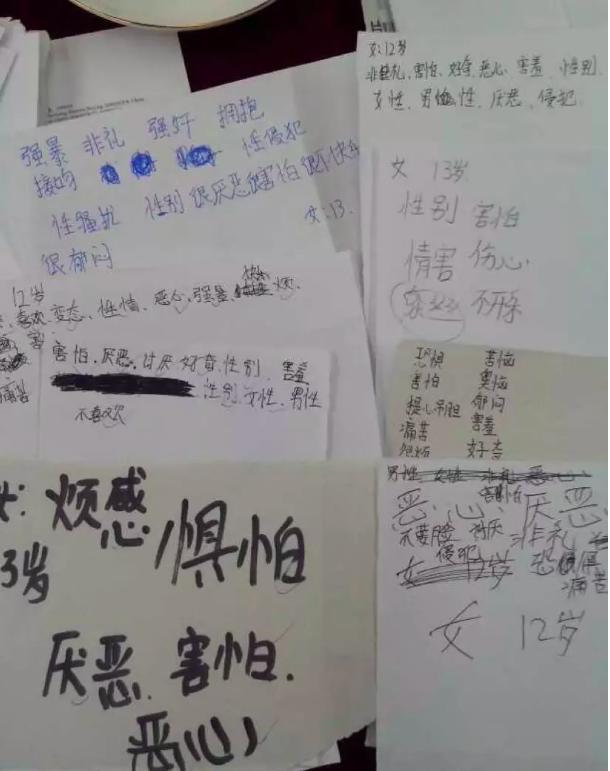 强暴 非礼 强奸 拥抱
接吻 性侵犯
性骚扰 性别 很厌恶 很害怕 很不快乐
女.13.
很郁闷
女:12岁
非礼、害怕、好奇、恶心、害羞、性别、
女性、男性、厌恶、侵犯.
女 13岁
性别 害怕
情害 伤心
12岁
喜欢、变态、性情、恶心、强暴、烦.
害怕、厌恶、讨厌、好奇、性别、害羞
性别、女性、男性
不喜欢
痛苦
恐惧 害怕
提心吊胆 郁闷
痛苦 害羞
好奇
女: 烦感
3岁
惧怕
厌恶、害怕.
恶心
男性 女性 非礼 恶心
害怕
恶心、厌恶
不要脸 讨厌 非礼
侵犯
女 12岁 恐惧
痛苦
女 12岁